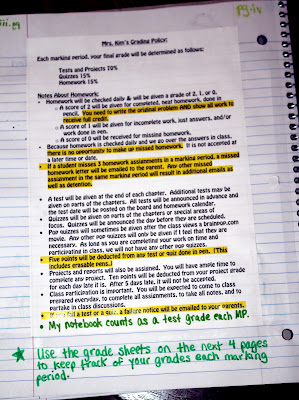 iii.pg
pg.iv
Mrs. Kim's Grading Policy:
Each marking period, your final grade will be determined as follows:
Tests and Projects 70%
Quizzes 15%
Homework 15%
Notes About Homework:
• Homework will be checked daily & will be given a grade of 2, 1, or 0.
o A score of 2 will be given for completed, neat homework, done in
pencil. You need to write the original problem AND show all work to
receive full credit.
o A score of 1 will be given for incomplete work, just answers, and/or
work done in pen.
o A score of 0 will be received for missing homework.
• Because homework is checked daily and we go over the answers in class,
there is no opportunity to make up missed homework. It is not accepted at
a later time or date.
• If a student misses 3 homework assignments in a marking period, a missed
homework letter will be emailed to the parent. Any other missed
assignment in the same marking period will result in additional emails as
well as detention.
• A test will be given at the end of each chapter. Additional tests may be
given on parts of the chapters. All tests will be announced in advance and
the test date will be posted on the board and homework calendar.
• Quizzes will be given on parts of the chapters or special areas of
focus. Quizzes will be announced the day before they are scheduled.
• Pop quizzes will sometimes be given after the class views a brainpop.com
movie. Any other pop quizzes will only be given if I feel that they are
necessary. As long as you are completing your work on time and
participating in class, we will not have any other pop quizzes.
• Five points will be deducted from any test or quiz done in pen. (This
includes erasable pens.)
• Projects and reports will also be assigned. You will have ample time to
complete any project. Ten points will be deducted from your project grade
for each day late it is. After 5 days late, it will not be accepted.
• Class participation is important. You will be expected to come to class
prepared everyday, to complete all assignments, to take all notes, and to
partake in class discussions.
• If you fail a test or a quiz, a failure notice will be emailed to your parents.
• My notebook counts as a test grade each MP.
Use the grade sheets on the next 4 pages
to keep track of your grades each marking
period.